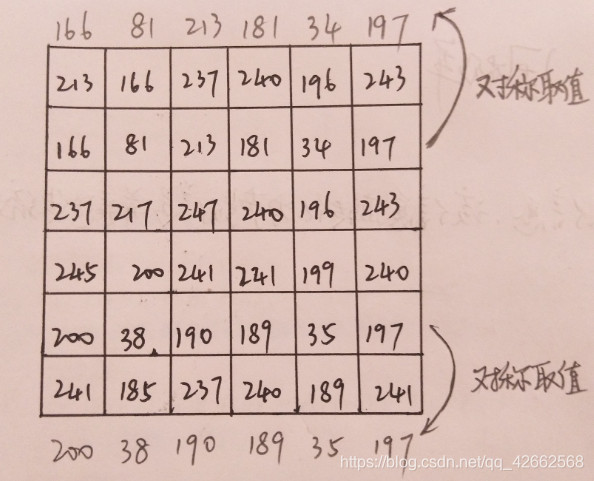 166 81 213 181 34 197
213 166 237 240 196 243
对称取值
166 81 213 181 34 197
237 217 247 240 196 243
245 200 241 241 199 240
200 38 190 189 35 197
对称取值
241 185 237 240 189 241
200 38 190 189 35 197
https://blog.csdn.net/qq_42662568